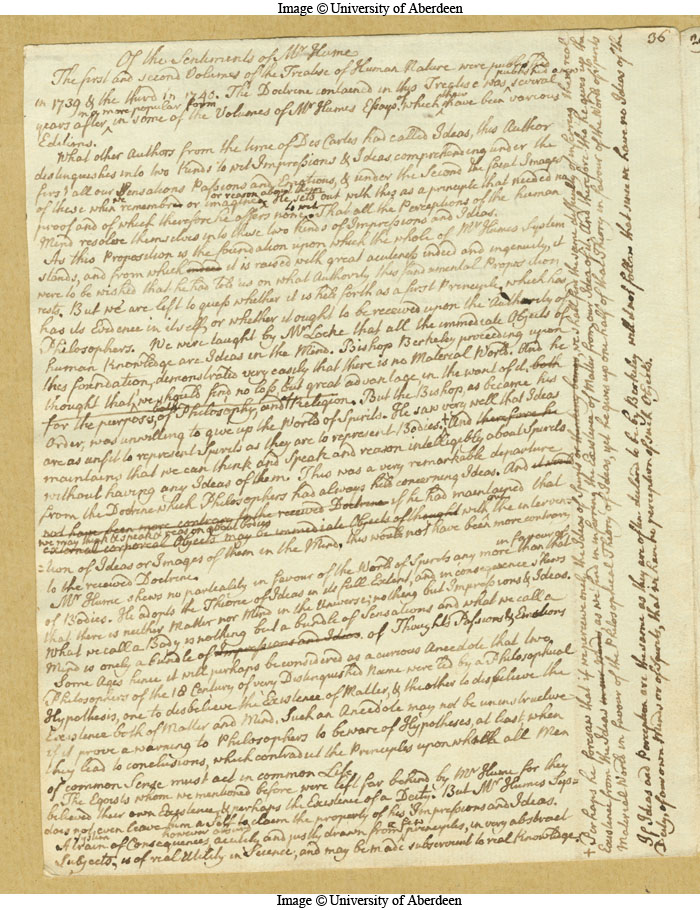 Image © University of Aberdeen
36
Of the Sentiments of Mr Hume
The first and second Volumes of the Treatise of Human Nature were published
in 1739 & the third in 1740. The Doctrine contained in this Treatise was published anew several
years after, in a more popular form in some of the Volumes of Mr Humes Essays. Of which there have been various
Editions.
What other Authors from the time of Des Cartes had called Ideas, this Author
distinguishes into two Kinds to wit Impressions & Ideas comprehending under the
first all our Sensations Passions and Emotions, & under the Second the faint Images
of these when we remember or imagine or reason about them. He sets out with this as a principle that needed no
proof and of which therefore he offers none, to wit That all the Perceptions of the human
Mind resolve themselves into these two kinds of Impressions and Ideas.
As this Proposition is the foundation upon which the whole of Mr Humes System
stands, and from which it is raised with great acuteness indeed and ingenuity, it
were to be wished that he had told us on what Authority this fundamental Proposition
rests. But we are left to guess whether it is held forth as a first Principle, which has
has its Evidence in itself, or whether it ought to be received upon the Authority of
Philosophers. We were taught by Mr Locke that all the immediate Objects of
human Knowledge are Ideas in the Mind. Bishop Berkeley proceeding upon
this foundation, demonstrated very easily that there is no Material World. And he
thought that, we should find no loss, but great advantage, in the want of it, both
for the purposes, of Philosophy, and Religion. But the Bishop, as became his
Order, was unwilling to give up the World of Spirits. He saw very well that Ideas
are as unfit to represent Spirits as they are to represent Bodies. + And therefore he
maintains that we can think and Speak and reason intelligibly about Spirits
without having any Ideas of them. This was a very remarkable departure
from the Doctrine which Philosophers had always held concerning Ideas. And it would
not have been more contrary to the received Doctrine if he had maintained that
we may think & speak & reason about bodies
external corporeal Objects may be immediate Objects of thought with the interven
=tion of Ideas or Images of them in the Mind, this would not have been more contrary
to the received Doctrine.
Mr Hume shews no partiality in favour of the World of Spirits any more than in favour of that
of Bodies. He adopts the Theorie of Ideas in its full Extent, and in consequence shews
that there is neither Matter nor Mind in the Universe; nothing but Impressions & Ideas.
What we call a Body is nothing but a bundle of Sensations and what we call a
Mind is onely a bundle of Impressions and Ideas of Thoughts Passions & Emotions
Some Ages hence it will perhaps be considered as a curious Anecdote that two
Philosophers of the 18 Century of very Distinguished Name were led by a Philosophical
Hypothesis, one to disbelieve the Existence of Matter, & the other to disbelieve the
Existence both of Matter and Mind. Such an Anecdote may not be uninstructive
if it prove a warning to Philosophers to beware of Hypotheses, at least when
they lead to conclusions, which contradict the Principles upon which all Men
of common Sense must act in common Life.
The Egoists whom we mentioned before were left far behind by Mr Hume for they
believed their own Existence, & perhaps the Existence of a Deity. But Mr Humes Sys=
=tem does not even leave him a Self to claim the property of his Impressions and Ideas.
A train of Consequences however absurd acutely and justly drawn from few principles, in very abstract
Subjects, is of real Utility in Science, and may be made subservient to real Knowledge.
+ Perhaps he foresaw that if we perceive only the Ideas of Spirits we shall find the same difficulty of inferring their real
Existence from the Ideas as we had in inferring the Existence of Matter from our Ideas of it; And therefore tho he gives up the
Material World in favour of the Philosophical Theory of Ideas, yet he gives up one half of that Theory in favour of the World of Spirits
If Ideas and Perception are the same as they are often declared to be by Berkeley will it not follow that since we have no Ideas of the
Deity of our own Minds or of Spirits, that we have no perception of such Objects.
Image © University of Aberdeen